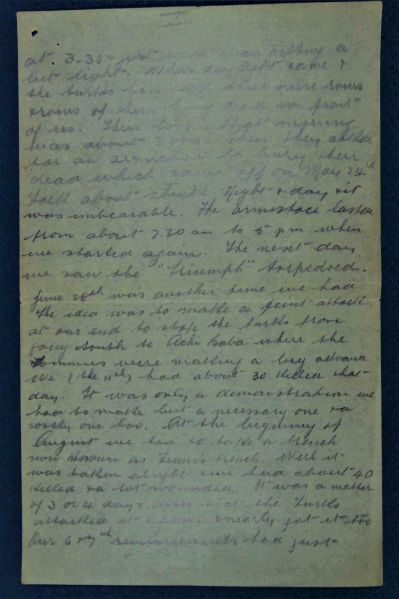 5
at 3.30 - just as it was getting a
bit light. When day light came &
the turks had gone there were rows
& rows of them lying dead in front
of us. Their loss that morning
was about 3 when they asked
for an armistice to bury their
dead which came off on May 24th
Talk about stink Night & day it
was unbearable. The armistace lasted
from about 7.30 am to 5 pm when
we started again. The next day
we saw the "Triumph" torpedoed.
June 28th was another time we had
The idea was to make a feint attack
at our end to stop the turks from
going south to Achi Baba where the
Tommies were making a big advance
We (the 11th) had about 30 killed that
day. It was only a demonstration we
had to make but a necessary one & a
costly one too. At the beginning of
August we had to take a trench
now known as Leane's trench. Well it
was taken alright & we had about 40
killed & a lot wounded. It was a matter
of 3 or 4 days after that the Turks
attacked it again & nearly got it too
Our 6 & 7th reinforcements had just